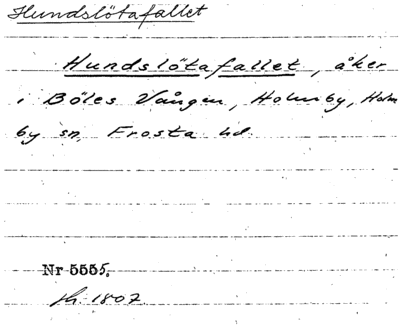 Hundslötafallet
Hundslötafallet, åker
i Böles Vången, Holmby, Holm
by sn, Frosta hd.
Nr 5555.
fh. 1802